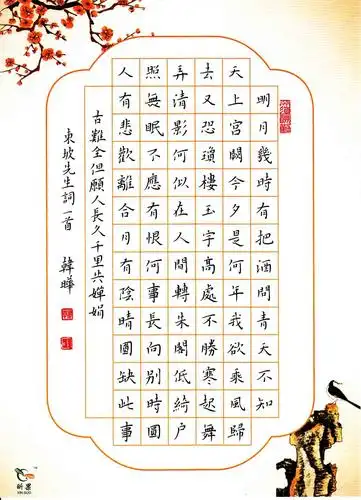 明月幾時有把酒問青天不知
天上宮闕今夕是何年我欲乘風歸
去又恐瓊樓玉宇高處不勝寒起舞
弄清影何似在人間轉朱閣低綺户
照無眠不應有恨何事長向別時圓
人有悲歡離合月有陰晴圓缺此事
古難全但願人長久千里共嬋娟
東坡先生詞一首 韓曄
XIN GUO